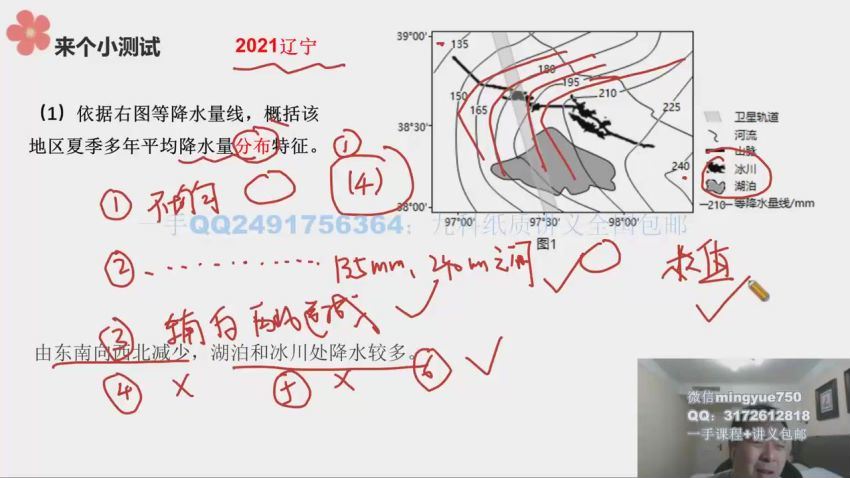 来个小测试
2021辽宁
（1）依据右图等降水量线，概括该
地区夏季多年平均降水量分布特征。 ①
① 不均匀
（4）
② 135mm、240mm之间
极值
③
由东南向西北减少，湖泊和冰川处降水较多。
④ × ⑤ × ⑥
39°00′
38°30′
38°00′
97°00′ 97°30′ 98°00′
135
150
165
180
195
210
225
240
卫星轨道
河流
山脉
冰川
湖泊
—210—等降水量线/mm
图1
一手QQ2491756364；九科纸质讲义全国包邮
微信mingyue750
QQ：3172612818
一手课程+讲义包邮